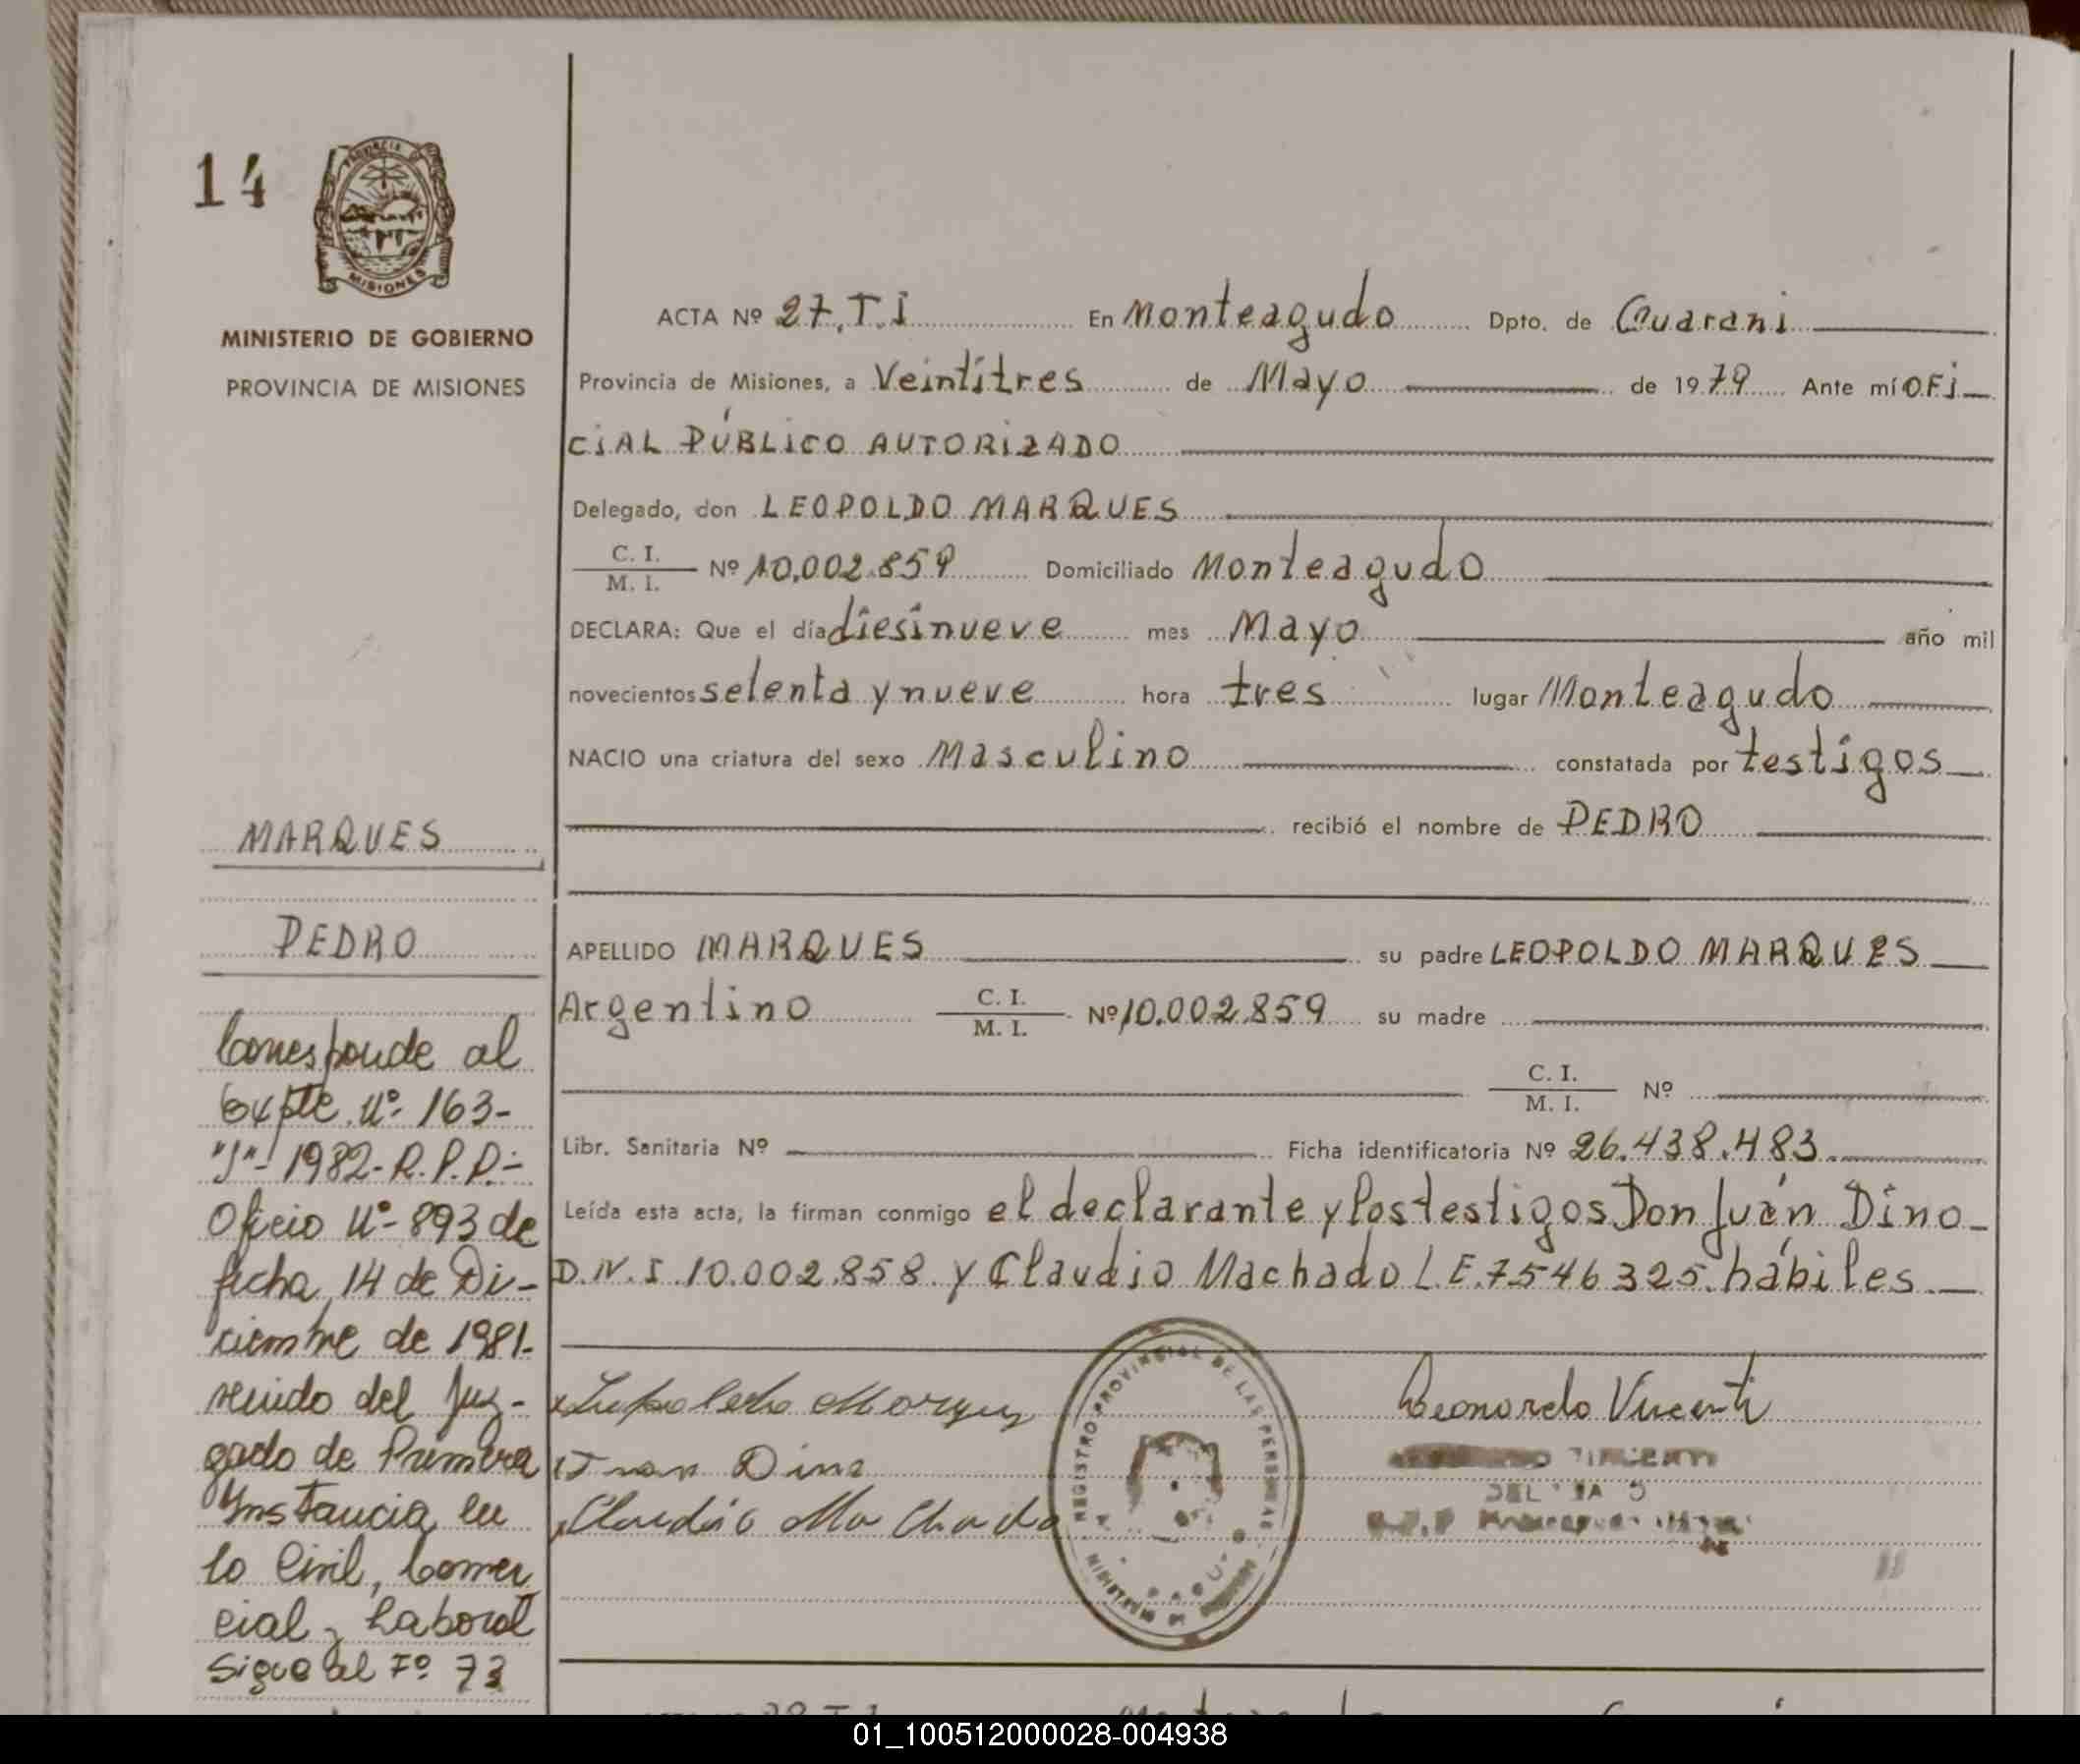 14
PROVINCIA D
MISIONES
MINISTERIO DE GOBIERNO
PROVINCIA DE MISIONES
MARQUES
PEDRO
Corresponde al
Expte. Nº 163-
"J"- 1982- R.P.P.-
Oficio Nº- 893 de
fecha 14 de Di-
ciembre de 1981-
venido del Juz-
gado de Primera
Instancia en
lo Civil, Comer
cial y Laboral
Sigue al Fº 73
ACTA Nº 27.T.I En Monteagudo Dpto. de Guarani
Provincia de Misiones, a Veintitres de Mayo de 1979 Ante mí OFi
CiAL PÚBLiCO AUTORiZADO
Delegado, don LEOPOLDO MARQUES
C. I.
M. I. Nº 10.002.859 Domiciliado Monteagudo
DECLARA: Que el día diesinueve mes Mayo año mil
novecientos setenta y nueve hora tres lugar Monteagudo
NACIO una criatura del sexo Masculino constatada por testigos
recibió el nombre de PEDRO
APELLIDO MARQUES su padre LEOPOLDO MARQUES
Argentino C. I.
M. I. Nº 10.002.859 su madre
C. I.
M. I. Nº
Libr. Sanitaria Nº Ficha identificatoria Nº 26.438.483
Leída esta acta, la firman conmigo el declarante y los testigos Don Juán Dino
D.N.I 10.002.858 y Claudio Machado L.E.7546325. hábiles
Juan Dino
Claudio Ma Chado
REGISTRO PROVINCIAL DE LAS PERSONAS
MINISTERIO DE
Leonardo Vicenti
01_100512000028-004938